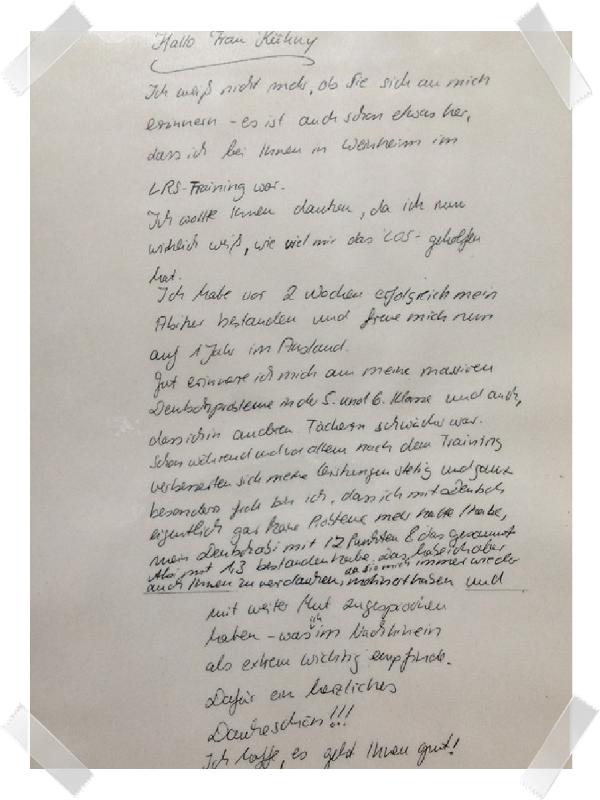 Hallo Frau Kühny
Ich weiß nicht mehr, ob Sie sich an mich
erinnern - es ist auch schon etwas her,
dass ich bei Ihnen in Weinheim im
LRS-Training war.
Ich wollte Ihnen danken, da ich nun
wirklich weiß, wie viel mir das LOS- geholfen
hat.
Ich habe vor 2 Wochen erfolgreich mein
Abitur bestanden und freue mich nun
auf 1 Jahr im Ausland.
Gut erinnere ich mich an meine massiven
Deutschprobleme in der 5. und 6. Klasse und auch,
dass ich in anderen Fächern schwächer war.
Schon während und vor allem nach dem Training
verbesserten sich meine Leistungen stetig und ganz
besonders froh bin ich, dass ich mit Deutsch
eigentlich gar keine Probleme mehr hatte / habe,
mein Deutschabi mit 12 Punkten & das gesamte
Abi mit 13 bestanden habe. Das habe ich aber
auch Ihnen zu verdanken, da Sie mich immer wieder
motiviert haben und
mir weiter Mut zugesprochen
haben - was ich im Nachhinein
als extrem wichtig empfinde.
Dafür ein herzliches
Dankeschön!!!
Ich hoffe, es geht Ihnen gut!